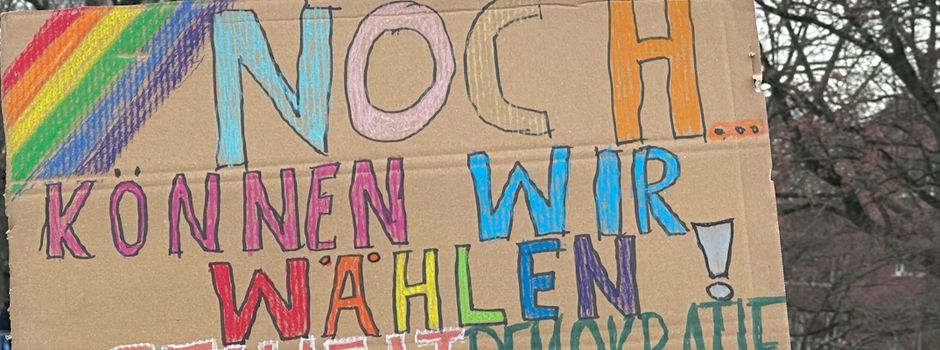 NOCH...
KÖNNEN WIR
WÄHLEN!
DEMOKRATIE